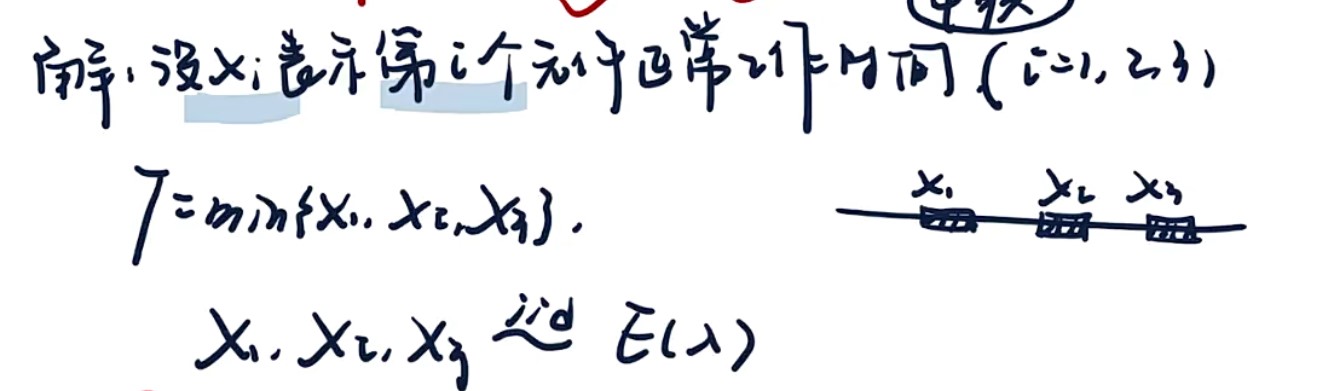 串联
解:设Xi表示第i个元件正常工作时间(i=1,2,3)
T=min{X₁,X₂,X₃}.
X₁ X₂ X₃
X₁,X₂,X₃ iid~ E(λ)